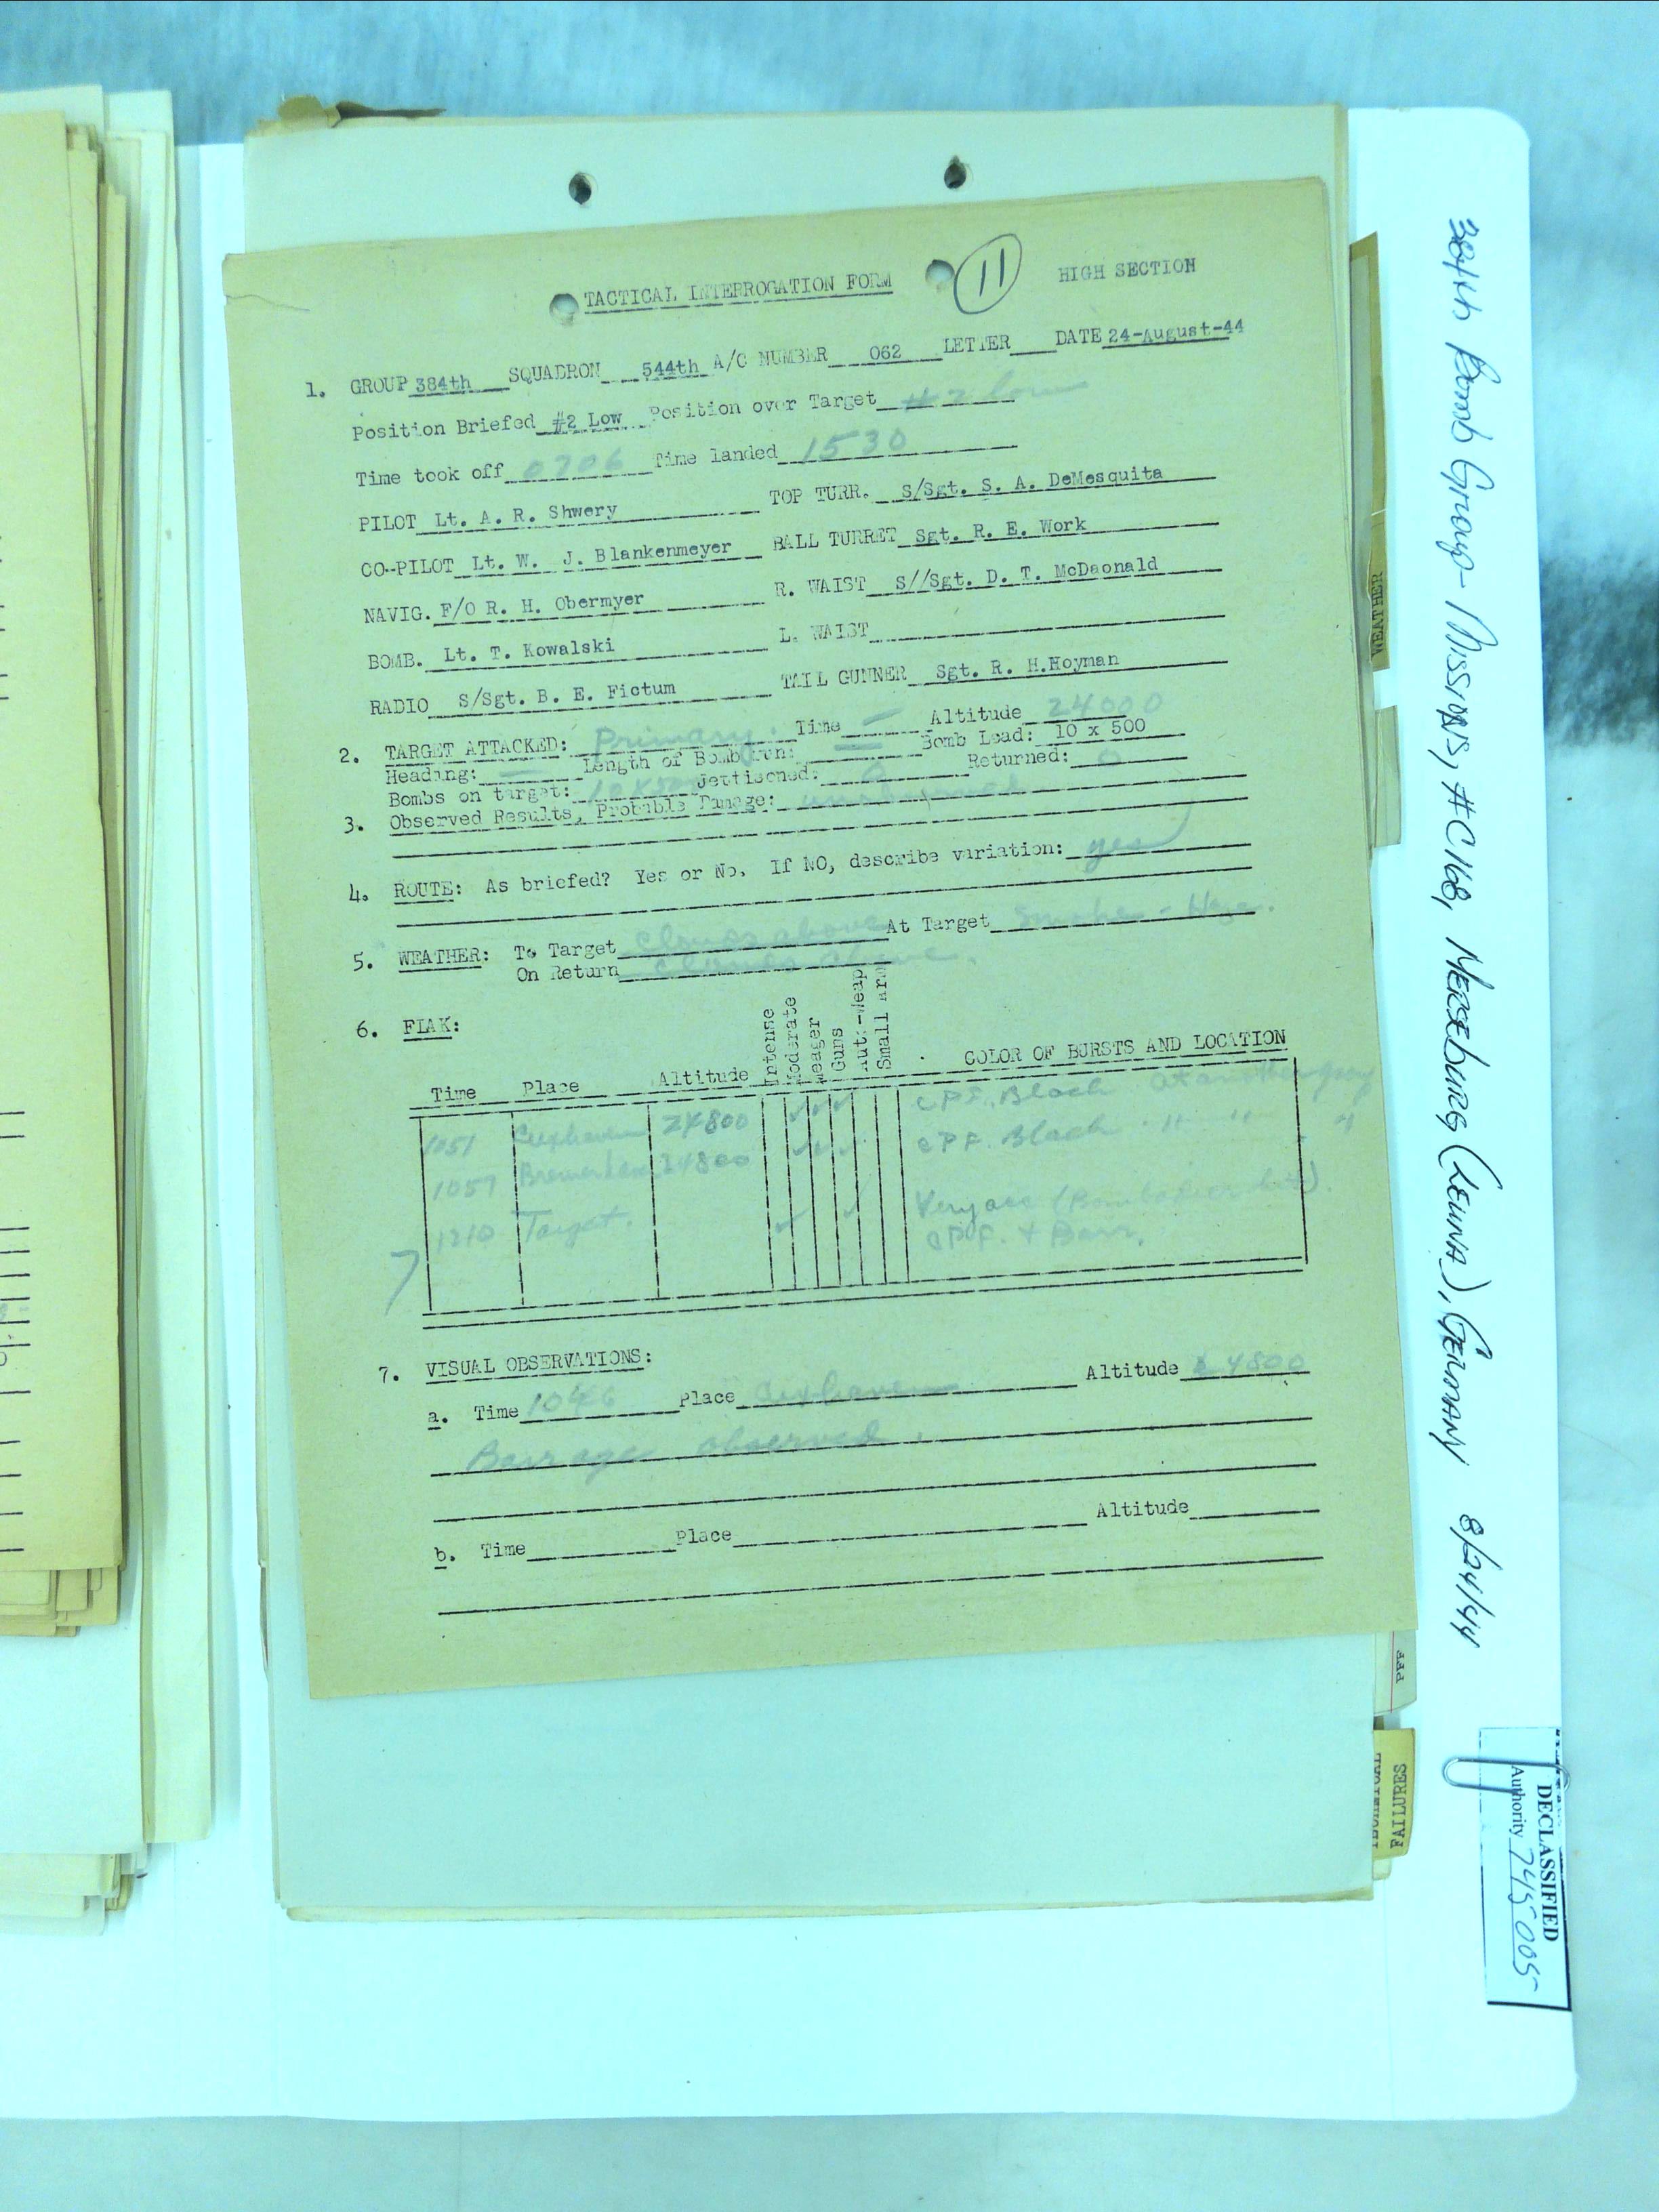 TACTICAL INTERROGATION FORM 11 HIGH SECTION
1. GROUP 384th SQUADRON 544th A/C NUMBER 062 LETTER DATE 24-August-44
Position Briefed #2 Low Position over Target #2 low
Time took off 0706 Time landed 1530
PILOT Lt. A. R. Shwery TOP TURR. S/Sgt. S. A. DeMesquita
CO-PILOT Lt. W. J. Blankenmeyer BALL TURRET Sgt. R. E. Work
NAVIG. F/O R. H. Obermyer R. WAIST S//Sgt. D. T. McDaonald
BOMB. Lt. T. Kowalski L. WAIST
RADIO S/Sgt. B. E. Fictum TAIL GUNNER Sgt. R. H.Hoyman
2. TARGET ATTACKED: Primary. Time — Altitude 24000
Heading: — Length of Bomb Run: — Bomb Load: 10 x 500
Bombs on target: 10x500 Jettisoned: 0 Returned: 0
3. Observed Results, Probable Damage: unobserved
4. ROUTE: As briefed? Yes or No. If NO, describe variation: yes
5. WEATHER: To Target Clouds above At Target Smoke - Haze.
On Return Clouds above.
6. FLAK:
Time Place Altitude Intense Moderate Meager Guns Aut.-Weap Small Arm COLOR OF BURSTS AND LOCATION
1051 Cuxhaven 24800 ✓ ✓ ✓ CPF. Black at another group
1057 24800 ✓ ✓ ✓ CPF. Black " " "
1210 Target. ✓ ✓ Very acc (Bombadier hit).
CPF. + Barr.
7. VISUAL OBSERVATIONS:
a. Time 1046 Place Cuxhaven Altitude 24800
Barrage observed.
b. Time Place Altitude
384th Bomb Group - Missions, #C168, Merseburg (Leuna), Germany 8/24/44
WEATHER
FAILURES
DECLASSIFIED
Authority 745005